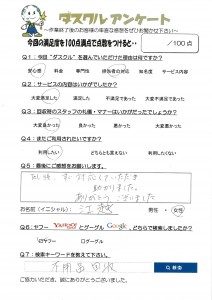 ダスクルアンケート
～作業終了後のお客様の率直な感想をぜひお聞かせ下さい～
今回の満足度を100点満点で点数をつけると‥ /100点
Q1：今回“ダスクル”を選んでいただけた理由は何ですか？
安心感 料金 専門性 担当者の対応 知名度 サービス内容
Q2：サービスの内容はいかがでしたか？
大変満足した 満足した 不満足であった 大変不満足であった
Q3：担当者のスタッフの礼儀・マナーはいかがだったでしょうか？
大変良かった 良かった 悪かった 大変悪かった
Q4：またご利用されたいですか？
利用したい どちらとも言えない 利用したくない
Q5：最後にご感想をお願いします。
対応していただき
助かりました。
ありがとうございました
お名前（イニシャル）： 男性・女性
Q6：ヤフー YAHOO! とグーグル Google、どちらで検索しましたか？
ヤフー グーグル
Q7：検索キーワードを教えて下さい。
不用品回収 検索
ご協力いただき、誠にありがとうございました。